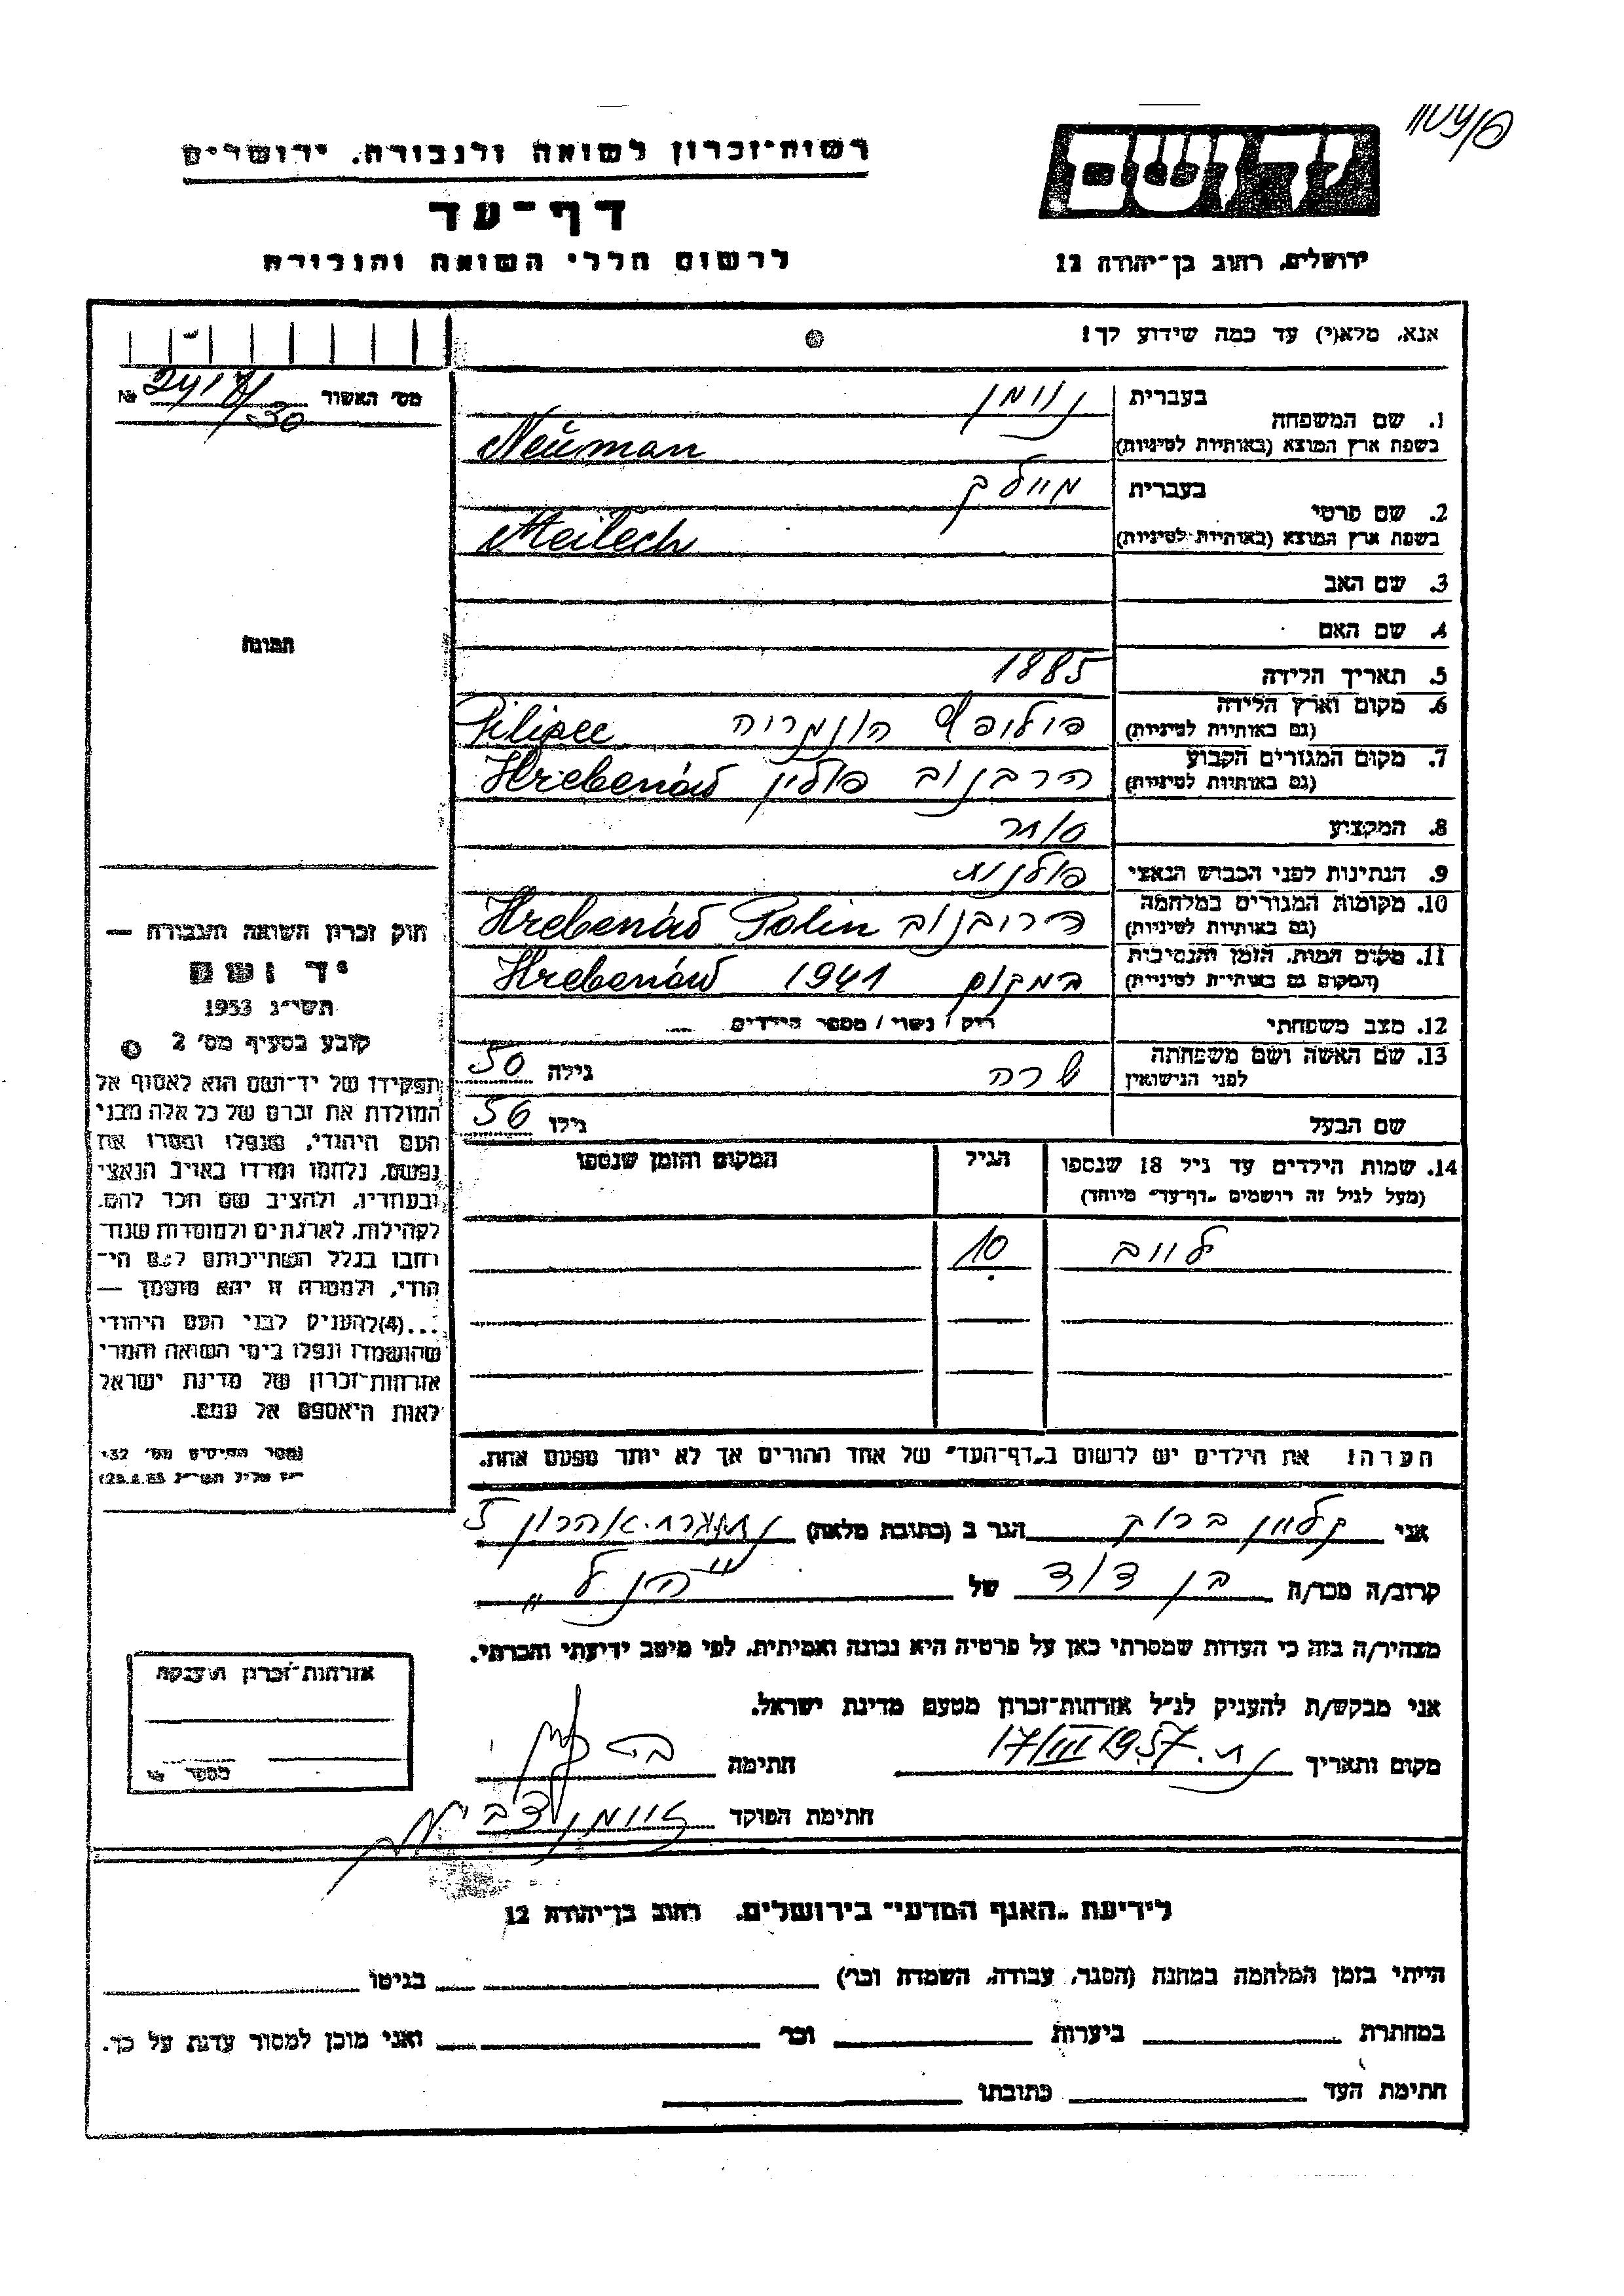 רשות־זכרון לשואה ולגבורה. ירושלים
דף־עד
לרשום חללי השואה והגבורה
יד ושם
ירושלים, רחוב בן־יהודה 12
אנא, מלא(י) עד כמה שידוע לך!
מס׳ האשור №
בעברית נוימן
1. שם המשפחה
בשפת ארץ המוצא (באותיות לטיניות) Neuman
בעברית מיילך
2. שם פרטי
בשפת ארץ המוצא (באותיות לטיניות) Meilech
3. שם האב
4. שם האם
5. תאריך הלידה 1885
6. מקום וארץ הלידה
(גם באותיות לטיניות) פילופץ הונגריה Pilipec
7. מקום המגורים הקבוע
(גם באותיות לטיניות) הרבנוב פולין Hrebenów
8. המקצוע
9. הנתינות לפני הכבוש הנאצי
10. מקומות המגורים במלחמה
(גם באותיות לטיניות) הרובנוב Hrebenów Polin
11. מקום המות, הזמן והנסיבות
(המקום גם באותיות לטיניות) במקום 1941 Hrebenów
12. מצב משפחתי רוק / נשוי / מספר הילדים
13. שם האשה ושם משפחתה
לפני הנישואין שרה גילה 50
שם הבעל גילו 56
14. שמות הילדים עד גיל 18 שנספו הגיל המקום והזמן שנספו
(מעל לגיל זה רושמים „דף־עד״ מיוחד)
לייב 10
הערה! את הילדים יש לרשום ב„דף־העד״ של אחד ההורים אך לא יותר מפעם אחת.
תמונה
חוק זכרון השואה והגבורה —
יד ושם
תשי״ג 1953
קובע בסעיף מס׳ 2
תפקידו של יד־ושם הוא לאסוף אל
המולדת את זכרם של כל אלה מבני
העם היהודי, שנפלו ומסרו את
נפשם, נלחמו ומרדו באויב הנאצי
ובעוזריו, ולהציב שם וזכר להם,
לקהילות, לארגונים ולמוסדות שנח־
רבו בגלל השתייכותם לעם הי־
הודי, ולמטרה זו יהא מוסמך —
...(4) להעניק לבני העם היהודי
שהושמדו ונפלו בימי השואה והמרי
אזרחות־זכרון של מדינת ישראל
לאות היאספם אל עמם.
אני קליין ברוך הגר ב (כתובת מלאה)
קרוב/ה מכר/ה בן דוד של הנ״ל
מצהיר/ה בזה כי העדות שמסרתי כאן על פרטיה היא נכונה ואמיתית, לפי מיטב ידיעתי והכרתי.
אני מבקש/ת להעניק לנ״ל אזרחות־זכרון מטעם מדינת ישראל.
מקום ותאריך 17/III 1957 חתימה
חתימת הפוקד
אזרחות־זכרון הוענקה
מספר
לידיעת „האגף המדעי״ בירושלים, רחוב בן־יהודה 12
הייתי בזמן המלחמה במחנה (הסגר, עבודה, השמדה וכו׳) בגיטו
במחתרת ביערות וכו׳ ואני מוכן למסור עדות על כך.
חתימת העד כתובתו